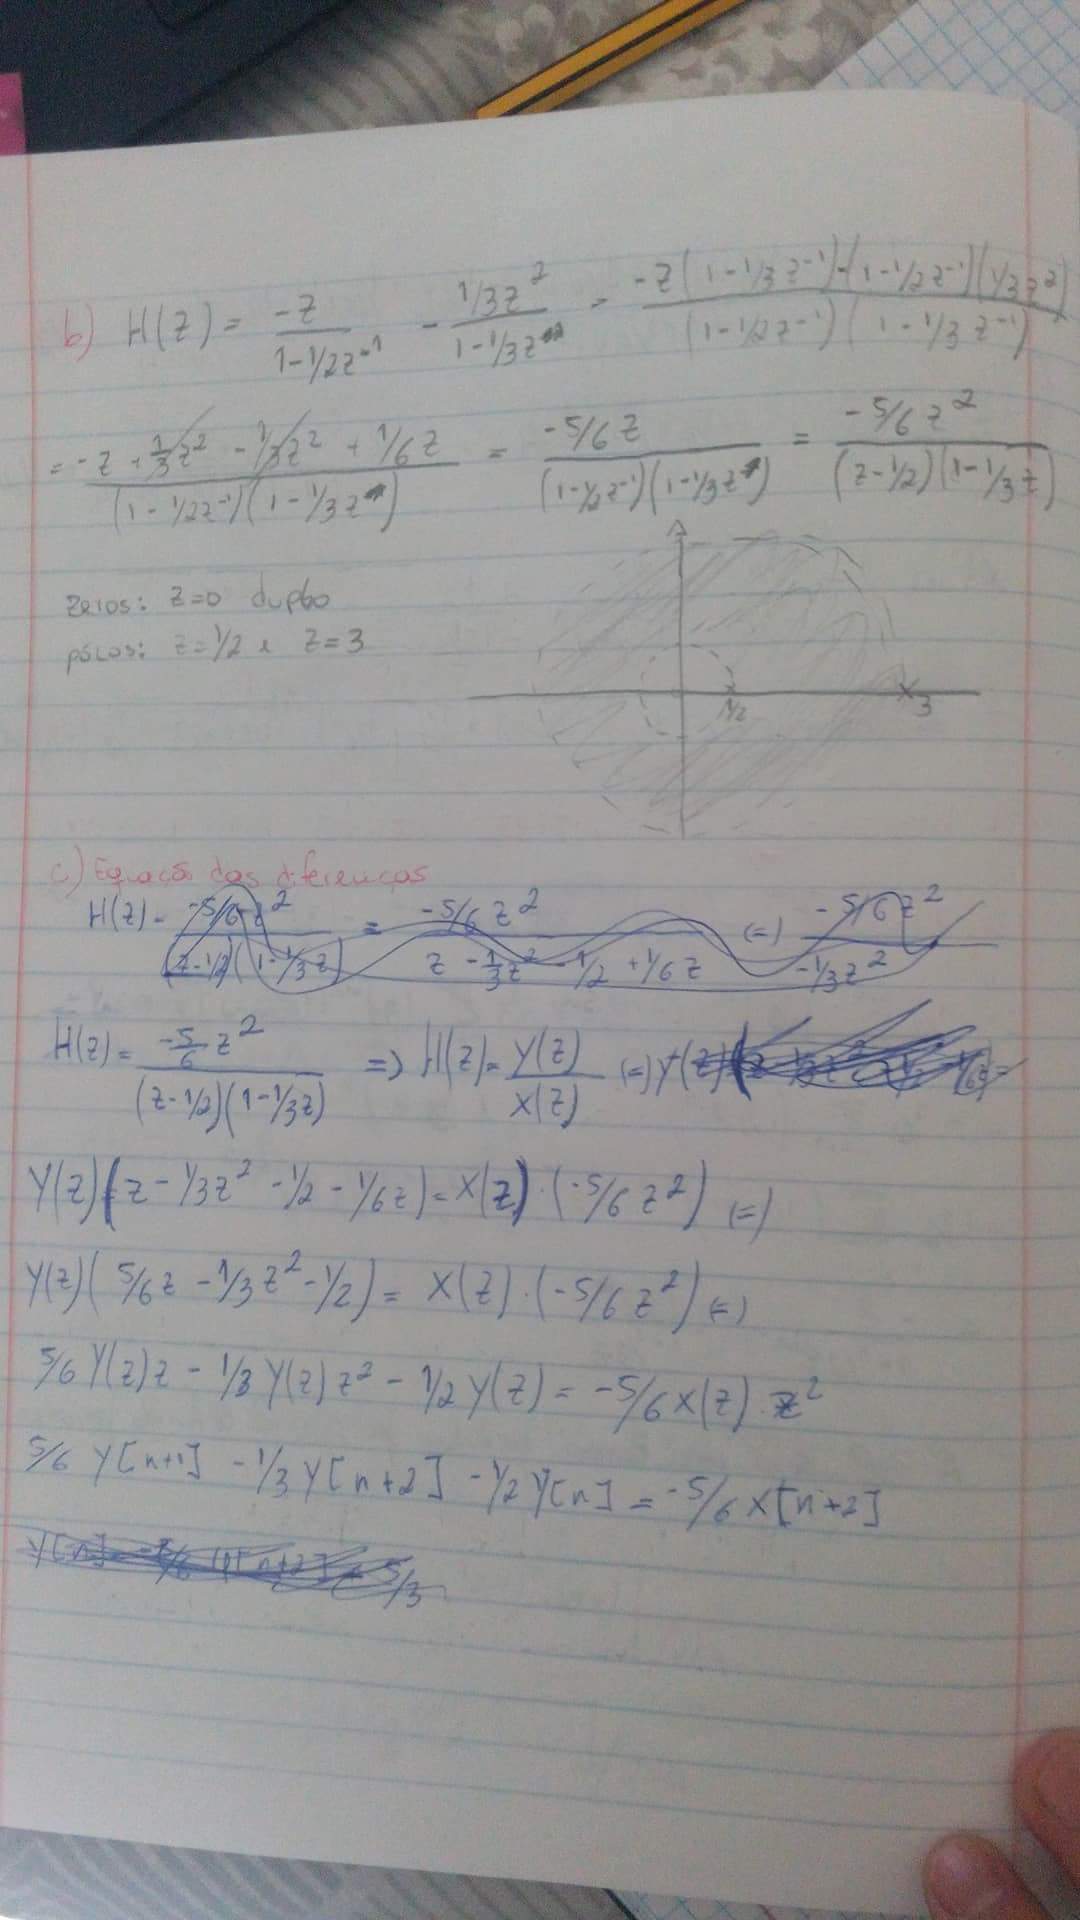 b) H(z) = -z / (1-1/2z^-1) - 1/3z^2 / (1-1/3z) = -z(1-1/3z^-1)-(1-1/2z^-1)(1/3z^2) / (1-1/2z^-1)(1-1/3z^-1)
= -z + 1/3z^2 - 1/3z^2 + 1/6z / (1-1/2z^-1)(1-1/3z) = -5/6z / (1-1/2z^-1)(1-1/3z) = -5/6z^2 / (z-1/2)(1-1/3z)
zeros: z=0 duplo
pólos: z=1/2 e z=3
1/2 3
c) Equação das diferenças
H(z) = -5/6z^2 / (z-1/2)(1-1/3z) = -5/6z^2 / z - 1/3z^2 - 1/2 + 1/6z (=) -5/6z^2 / -1/3z^2
H(z) = -5/6 z^2 / (z-1/2)(1-1/3z) => H(z) = Y(z) / X(z) (=) Y(z)
Y(z)(z - 1/3z^2 - 1/2 - 1/6z) = X(z) · (-5/6z^2) (=)
Y(z)(5/6z - 1/3z^2 - 1/2) = X(z) · (-5/6z^2) (=)
5/6 Y(z)z - 1/3 Y(z)z^2 - 1/2 Y(z) = -5/6 X(z) · z^2
5/6 Y[n+1] - 1/3 Y[n+2] - 1/2 Y[n] = -5/6 X[n+2]